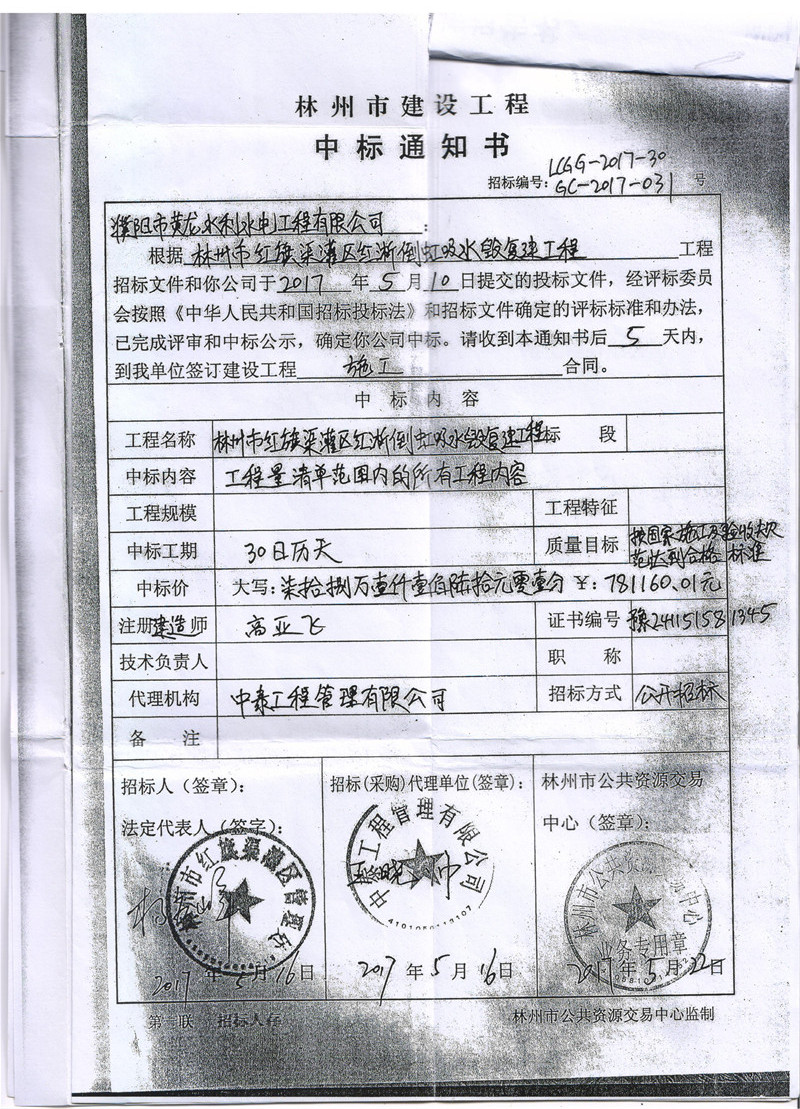 林州市建设工程
中标通知书
LCGG-2017-30
招标编号：GC-2017-031 号
濮阳市黄龙水利水电工程有限公司：
根据 林州市红旗渠灌区红淅倒虹吸水毁复建工程 工程
招标文件和你公司于2017 年 5 月 10 日提交的投标文件，经评标委员
会按照《中华人民共和国招标投标法》和招标文件确定的评标标准和办法，
已完成评审和中标公示，确定你公司中标。请收到本通知书后 5 天内，
到我单位签订建设工程 施工 合同。
中 标 内 容
工程名称 林州市红旗渠灌区红淅倒虹吸水毁复建工程 标 段
中标内容 工程量清单范围内的所有工程内容
工程规模 工程特征
中标工期 30日历天 质量目标 按国家施工及验收规范达到合格标准
中标价 大写：柒拾捌万壹仟壹佰陆拾元零壹分 ¥：781160.01元
注册建造师 高亚飞 证书编号 豫24151581345
技术负责人 职 称
代理机构 中泰工程管理有限公司 招标方式 公开招标
备 注
招标人（签章）： 招标(采购)代理单位(签章)： 林州市公共资源交易
法定代表人（签字）： 中心（签章）：
林州市红旗渠灌区管理处
中泰工程管理有限公司
林州市公共资源交易中心
业务专用章
2017 年 5 月 16 日 2017 年 5 月 16 日 2017 年 5 月 22 日
第一联 招标人存 林州市公共资源交易中心监制